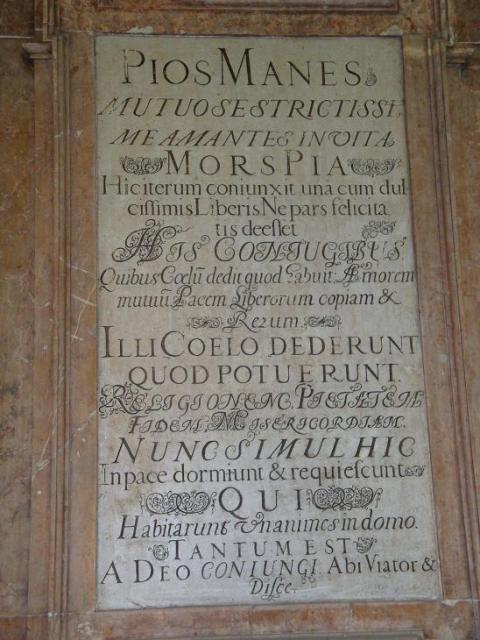 PIOS MANES
MUTUO SE STRICTISSI
ME AMANTES IN VITA
MORS PIA
Hic iterum coniunxit una cum dul
cissimis Liberis Ne pars felicita
tis deesset
HIS CONIUGIBUS
Quibus Cœlū dedit quod habuit Amorem
mutuū Pacem Liberorum copiam &
Rerum
ILLI COELO DEDERUNT
QUOD POTUERUNT.
RELIGIONEM, PIETATEM
FIDEM, MISERICORDIAM.
NUNC SIMUL HIC
In pace dormiunt & requiescunt
QUI
Habitarunt Unanimes in domo.
TANTUM EST
A DEO CONIUNGI. Abi Viator &
Disce.